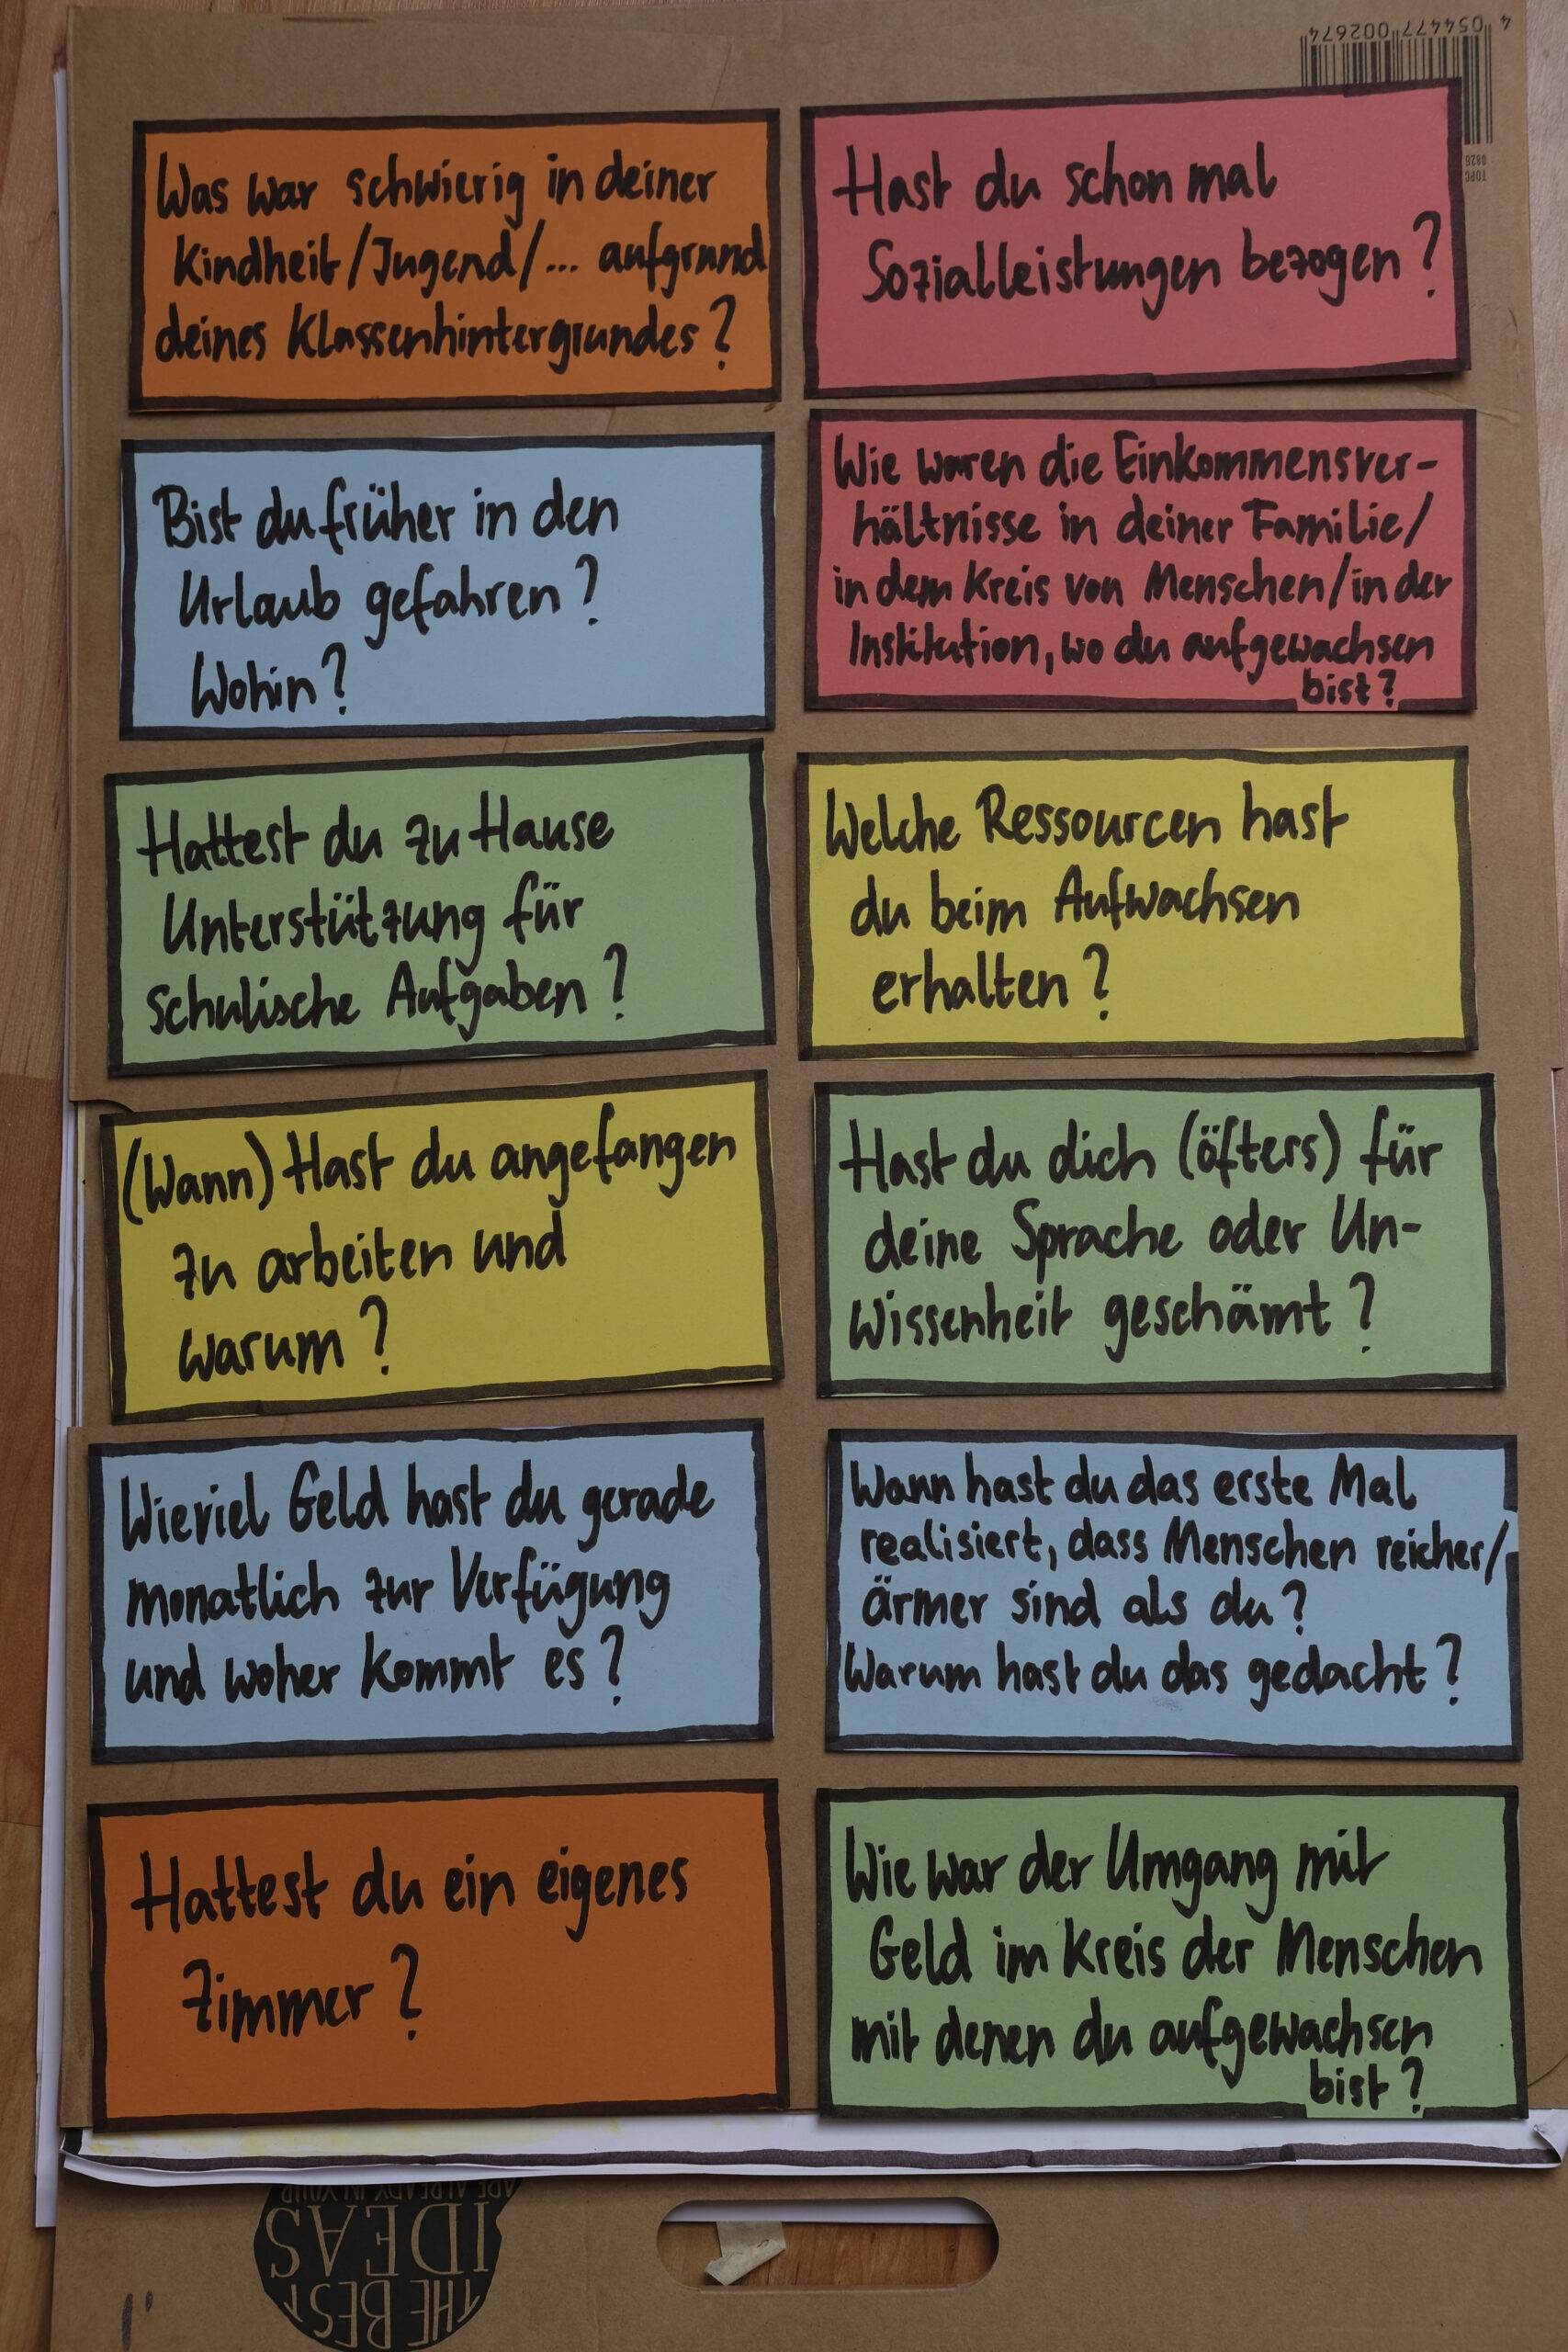 4 054477 002674
TOPC
0826
Was war schwierig in deiner
Kindheit/Jugend/... aufgrund
deines Klassenhintergrundes?
Hast du schon mal
Sozialleistungen bezogen?
Bist du früher in den
Urlaub gefahren?
Wohin?
Wie waren die Einkommensver-
hältnisse in deiner Familie/
in dem Kreis von Menschen/in der
Institution, wo du aufgewachsen
bist?
Hattest du zu Hause
Unterstützung für
schulische Aufgaben?
Welche Ressourcen hast
du beim Aufwachsen
erhalten?
(Wann) Hast du angefangen
zu arbeiten und
warum?
Hast du dich (öfters) für
deine Sprache oder Un-
wissenheit geschämt?
Wieviel Geld hast du gerade
monatlich zur Verfügung
und woher kommt es?
Wann hast du das erste Mal
realisiert, dass Menschen reicher/
ärmer sind als du?
Warum hast du das gedacht?
Hattest du ein eigenes
Zimmer?
Wie war der Umgang mit
Geld im Kreis der Menschen
mit denen du aufgewachsen
bist?
THE BEST
IDEAS
ARE ALREADY IN YOUR